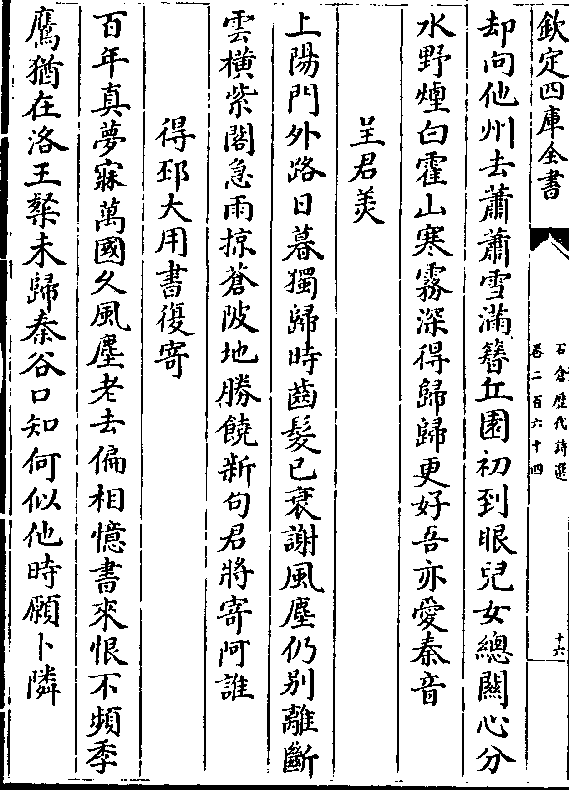 欽定四庫全書
石倉歷代詩選
卷二百六十四
十六
却向他州去蕭蕭雪滿簪丘園初到眼兒女總關心分
水野煙白霍山寒霧深得歸歸更好吾亦愛秦音
呈君美
上陽門外路日暮獨歸時齒髮已衰謝風塵仍别離斷
雲橫紫閣急雨掠蒼陂地勝饒新句君將寄阿誰
得邳大用書復寄
百年真夢寐萬國久風塵老去偏相憶書來恨不頻季
鷹猶在洛王粲未歸秦谷口知何似他時願卜隣